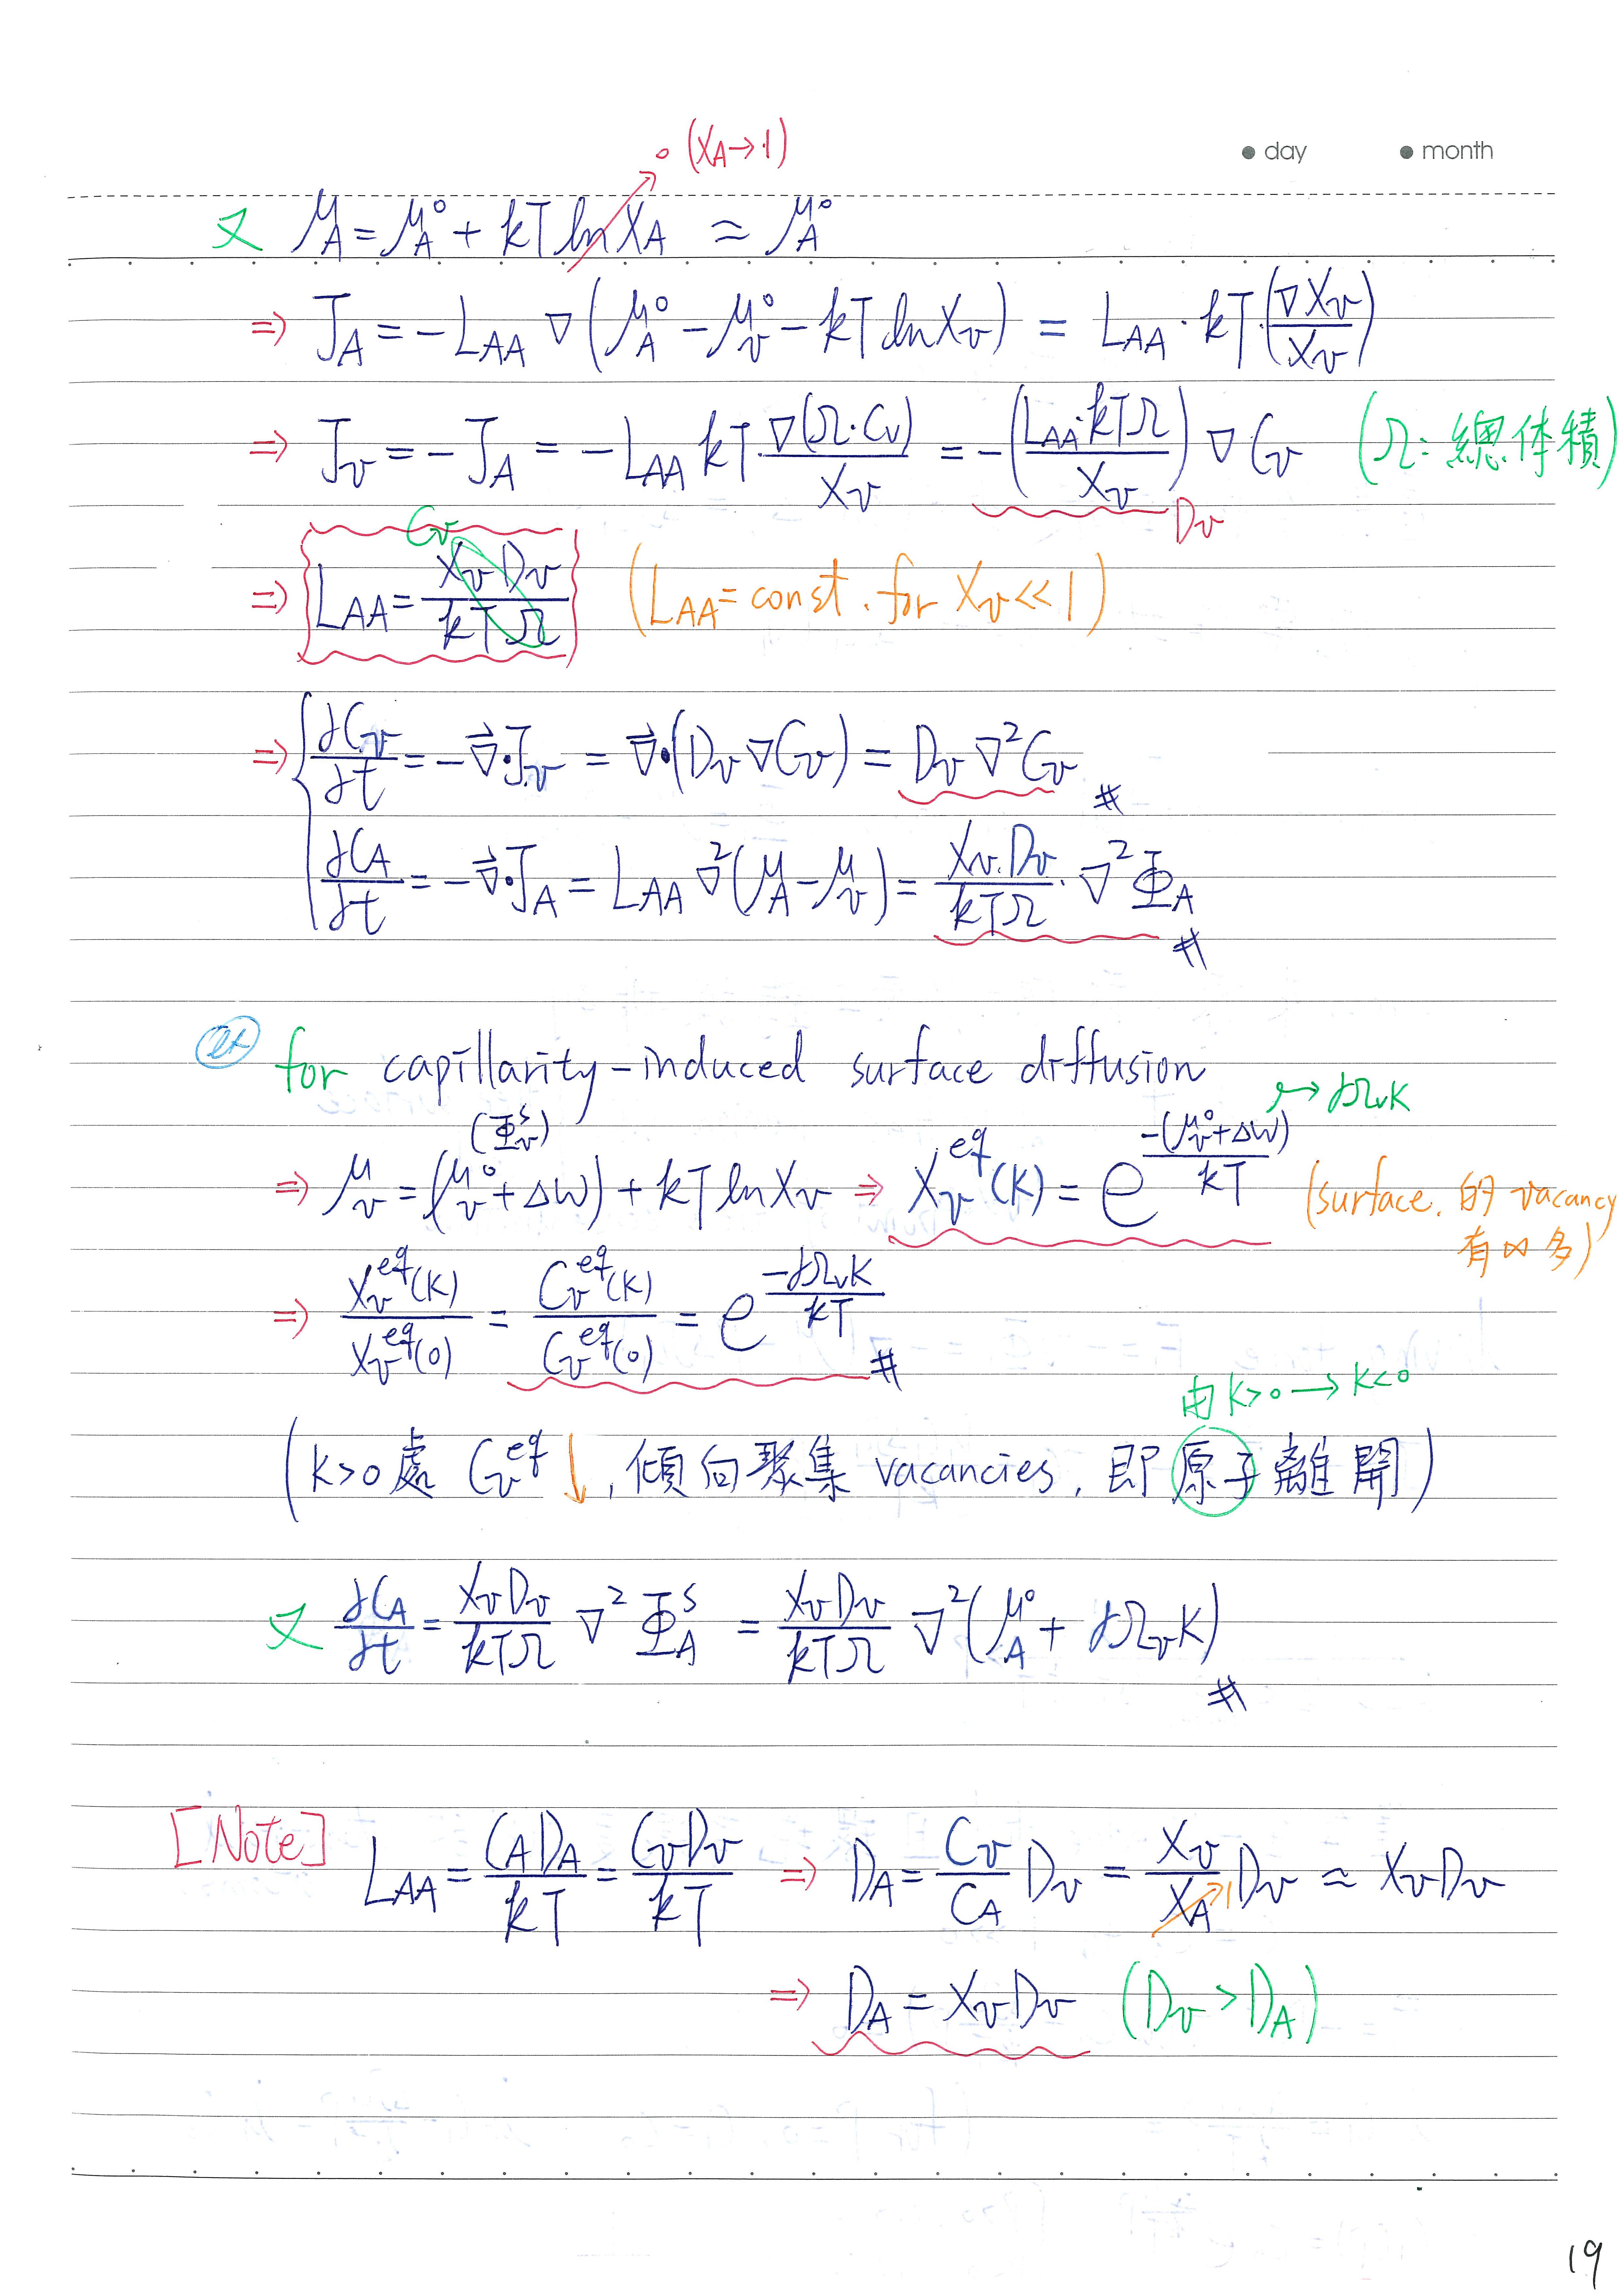 ● day ● month
0 (X_A→1)
又 μ_A = μ_A° + kT ln X_A ≈ μ_A°
⇒ J_A = -L_AA ∇(μ_A° - μ_v° - kT ln X_v) = L_AA · kT · (∇X_v / X_v)
⇒ J_v = -J_A = -L_AA kT · ∇(Ω·C_v) / X_v = -(L_AA·kTΩ / X_v) ∇C_v (Ω: 總体積)
D_v
C_v
⇒ L_AA = X_v D_v / kTΩ (L_AA = const. for X_v << 1)
⇒ { ∂C_v/∂t = -∇·J_v = ∇·(D_v ∇C_v) = D_v ∇²C_v #
∂C_A/∂t = -∇·J_A = L_AA ∇²(μ_A - μ_v) = X_v·D_v / kTΩ · ∇²Φ_A #
ex for capillarity-induced surface diffusion
(Φ_v^s) → γΩ_v K
⇒ μ_v = (μ_v° + ΔW) + kT ln X_v ⇒ X_v^eq (K) = e^(-(μ_v° + ΔW) / kT) (surface 的 vacancy
有多多)
⇒ X_v^eq(K) / X_v^eq(0) = C_v^eq(K) / C_v^eq(0) = e^(-γΩ_v K / kT) #
由 K>0 → K<0
(K>0 處 C_v^eq ↓, 傾向聚集 vacancies, 即原子離開)
又 ∂C_A/∂t = X_v D_v / kTΩ ∇² Φ_A^s = X_v D_v / kTΩ ∇²(μ_A° + γΩ_v K) #
[Note] L_AA = C_A D_A / kT = C_v D_v / kT ⇒ D_A = C_v / C_A D_v = X_v / X_A D_v ≈ X_v D_v
1
⇒ D_A = X_v D_v (D_v > D_A)
19